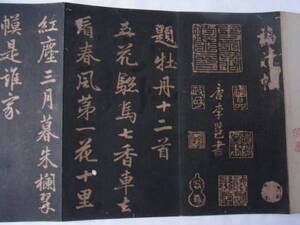 唐李邕書
題牡丹十二首
五花驄馬七香車去
看春風第一花十里
紅塵三月暮朱欄翠
幙是誰家